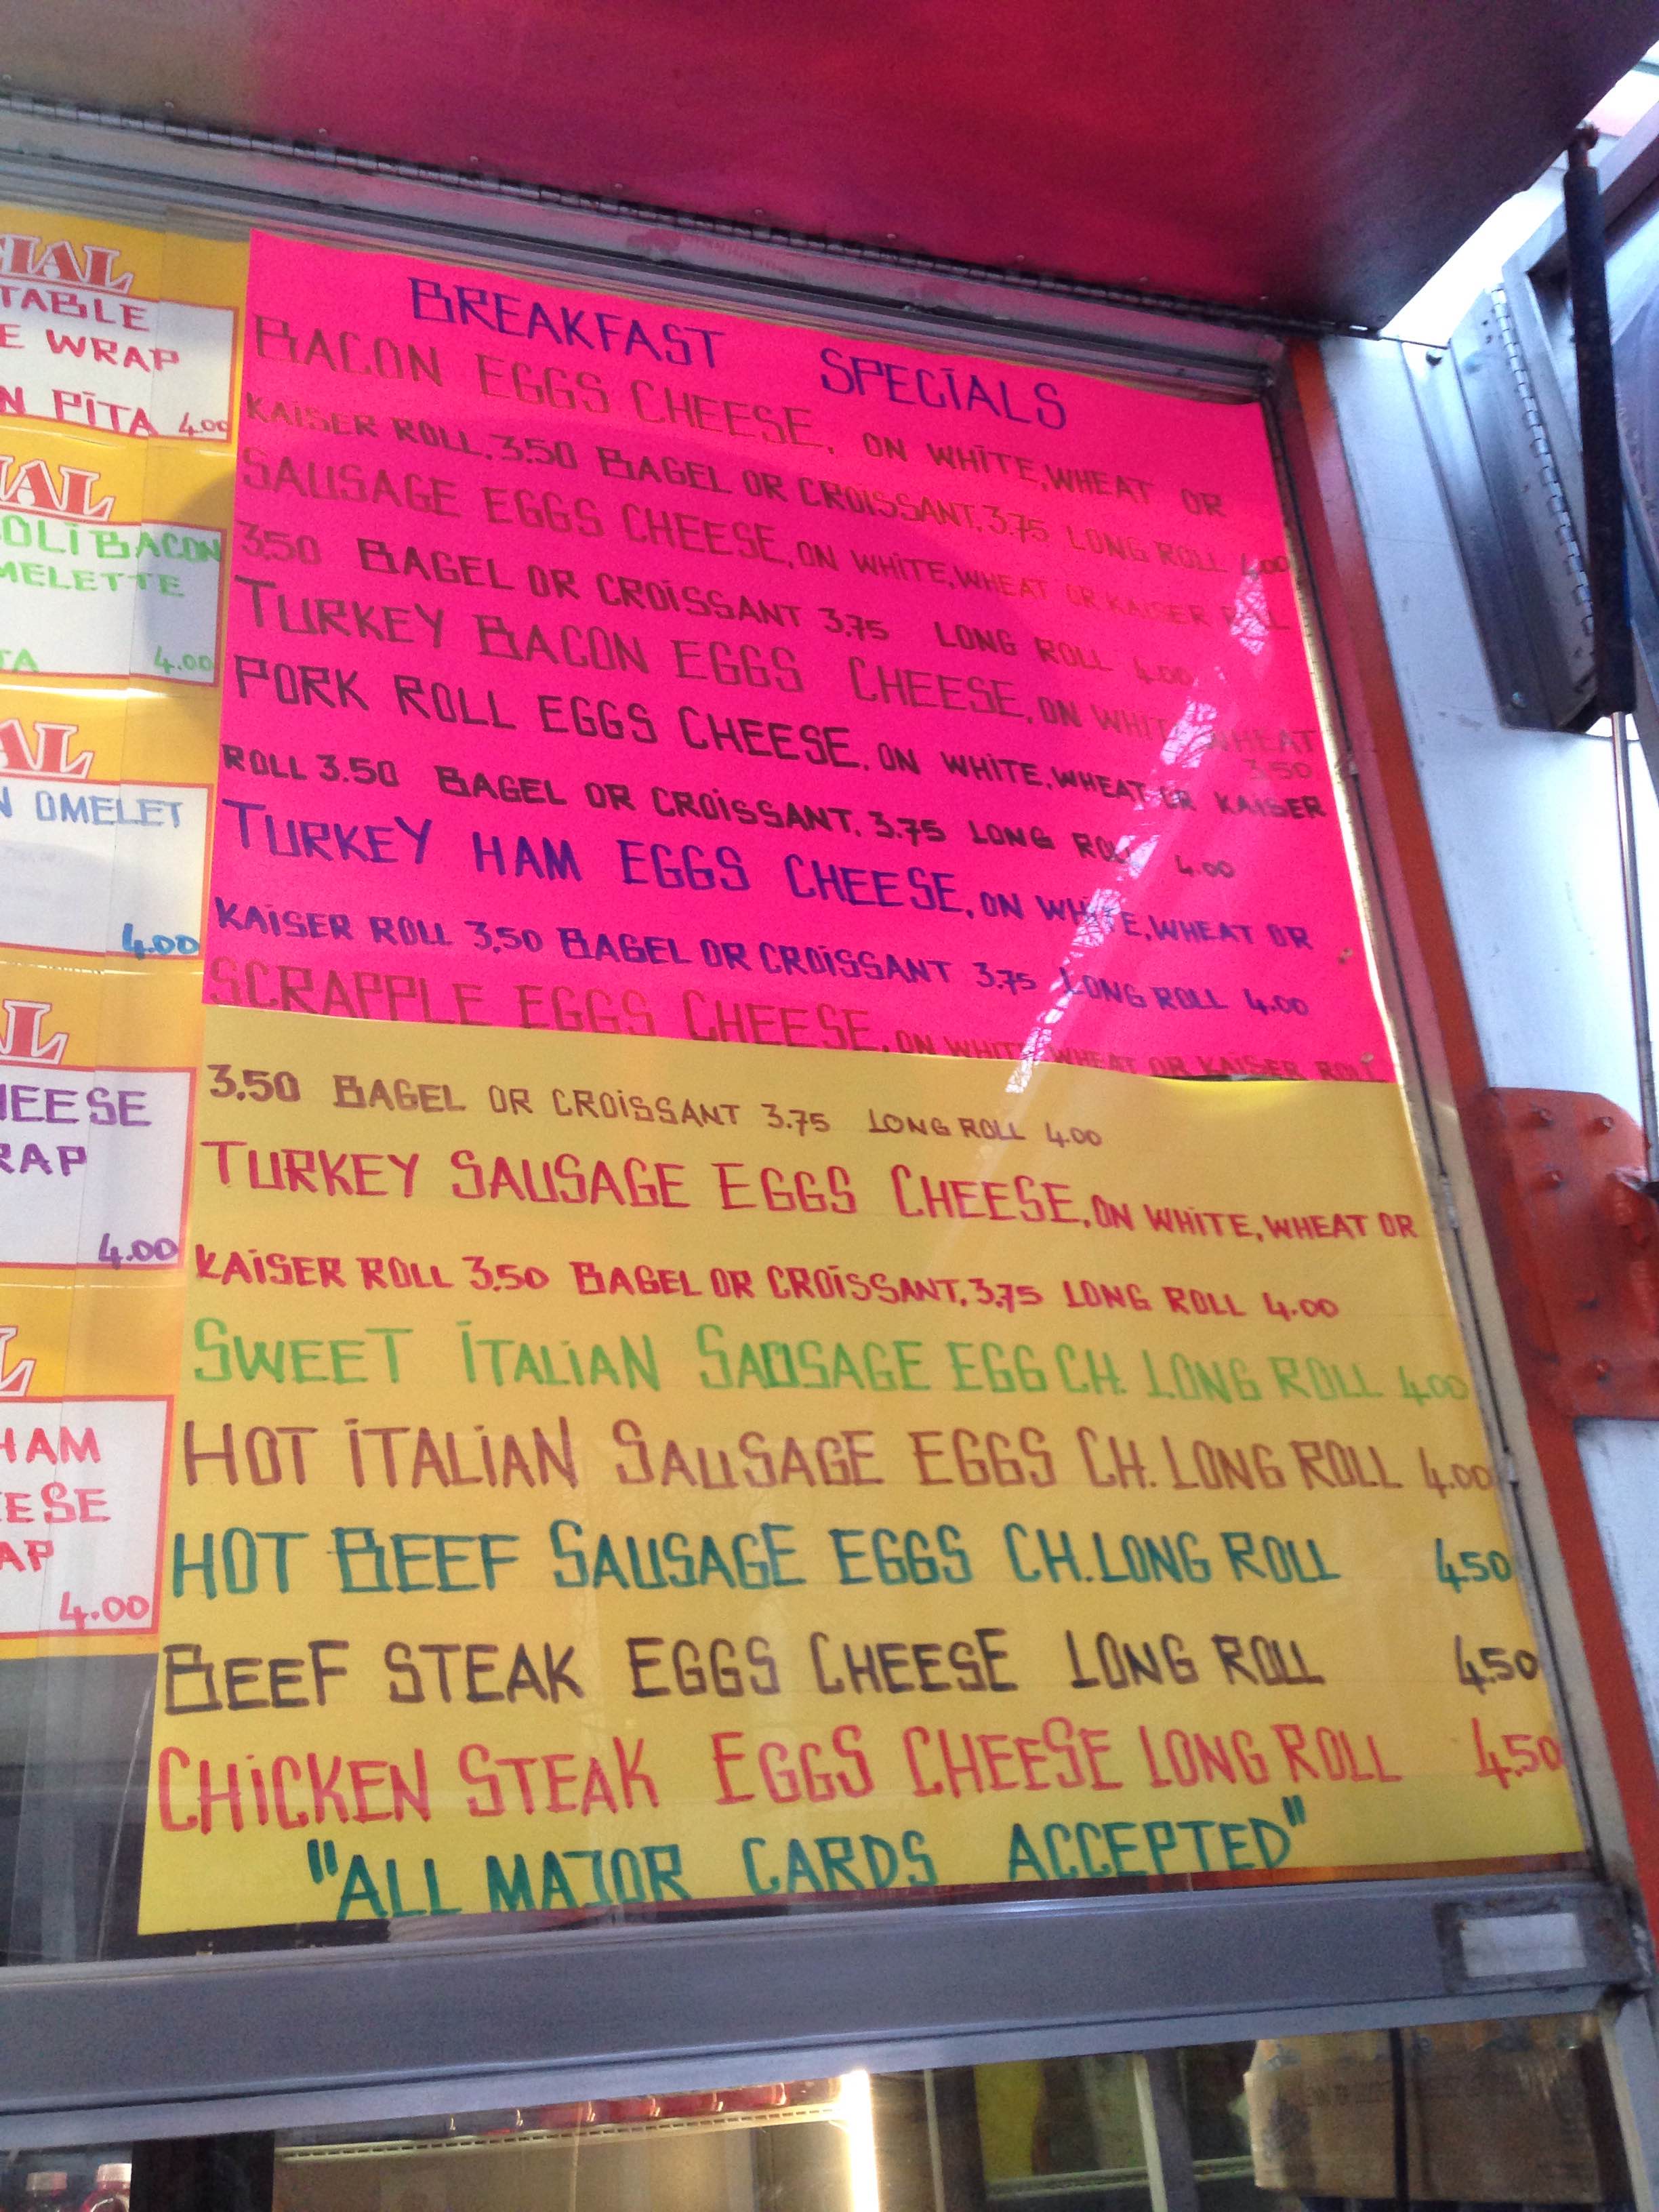 BREAKFAST SPECIALS
BACON EGGS CHEESE, ON WHITE, WHEAT OR
KAISER ROLL, 3.50 BAGEL OR CROISSANT, 3.75 LONG ROLL 4.00
SAUSAGE EGGS CHEESE, ON WHITE, WHEAT OR KAISER ROLL
3.50 BAGEL OR CROISSANT 3.75 LONG ROLL 4.00
TURKEY BACON EGGS CHEESE, ON WHITE WHEAT
3.50
PORK ROLL EGGS CHEESE, ON WHITE, WHEAT OR KAISER
ROLL 3.50 BAGEL OR CROISSANT, 3.75 LONG ROLL 4.00
TURKEY HAM EGGS CHEESE, ON WHITE, WHEAT OR
KAISER ROLL 3.50 BAGEL OR CROISSANT 3.75 LONG ROLL 4.00
SCRAPPLE EGGS CHEESE, ON WHITE WHEAT OR KAISER ROLL
3.50 BAGEL OR CROISSANT 3.75 LONG ROLL 4.00
TURKEY SAUSAGE EGGS CHEESE, ON WHITE, WHEAT OR
KAISER ROLL 3.50 BAGEL OR CROISSANT, 3.75 LONG ROLL 4.00
SWEET ITALIAN SAUSAGE EGG CH. LONG ROLL 4.00
HOT ITALIAN SAUSAGE EGGS CH. LONG ROLL 4.00
HOT BEEF SAUSAGE EGGS CH. LONG ROLL 4.50
BEEF STEAK EGGS CHEESE LONG ROLL 4.50
CHICKEN STEAK EGGS CHEESE LONG ROLL 4.50
"ALL MAJOR CARDS ACCEPTED"
WRAP
PITA 4.00
BACON
4.00
OMELET
4.00
4.00
HAM
4.00